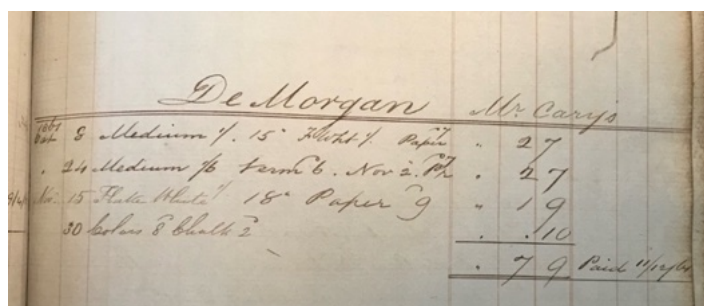 De Morgan Mr Cary's
1861
Oct 8 Medium 1/. 15" F. Wht 1/. Paper " 2 7
" 24 Medium 1/6 6. Nov 2. " 2 7
Nov. 15 Flake White 1/ 18" Paper 9 " 1 9
30 Colors 8 Chalk 2 " . 10
" 7 9 Paid 11/12/61